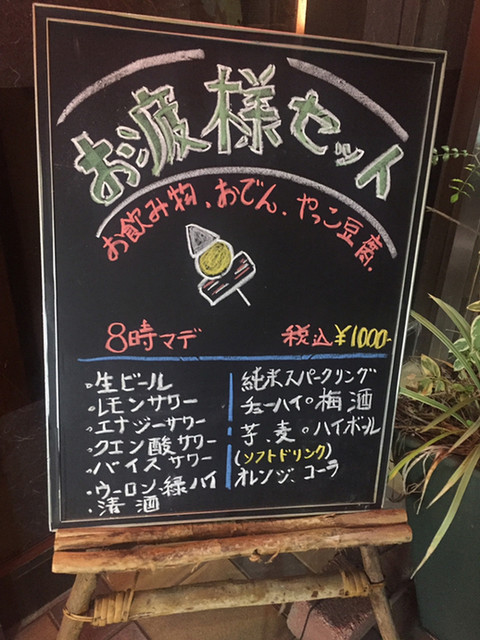 お疲様セット
お飲み物、おでん、やっこ豆腐、
8時マデ 税込¥1000-
。生ビール
。レモンサワー
。エナジーサワー
。クエン酸サワー
。バイスサワー
。ウーロン、緑ハイ
。清酒
純米スパークリング
チューハイ。梅酒
芋、麦。ハイボール
(ソフトドリンク)
オレンジ、コーラ